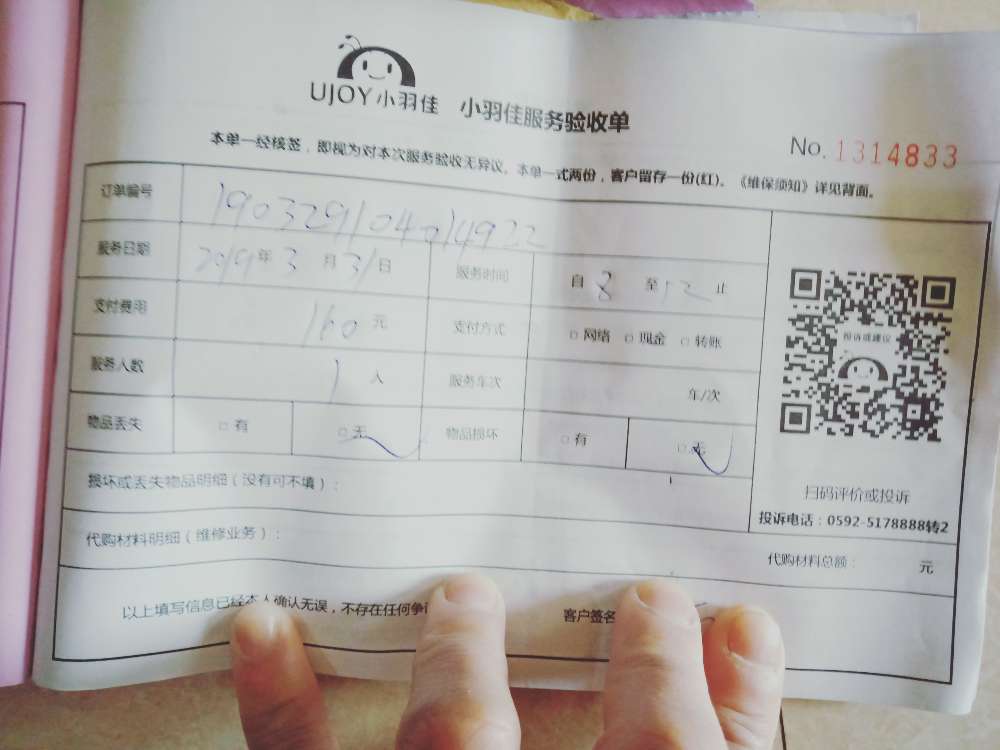 UJOY小羽佳 小羽佳服务验收单
No. 1314833
本单一经核签，即视为对本次服务验收无异议。本单一式两份，客户留存一份(红)。《维保须知》详见背面。
订单编号 190329104014922
服务日期 2019年3月31日 服务时间 自8至12止
支付费用 160元 支付方式 □网络 □现金 □转账
服务人数 1人 服务车次 车/次
物品丢失 □有 □无 物品损坏 □有 □无
投诉或建议
损坏或丢失物品明细（没有可不填）：
扫码评价或投诉
投诉电话：0592-5178888转2
代购材料明细（维修业务）： 代购材料总额： 元
以上填写信息已经本人确认无误，不存在任何争 客户签名